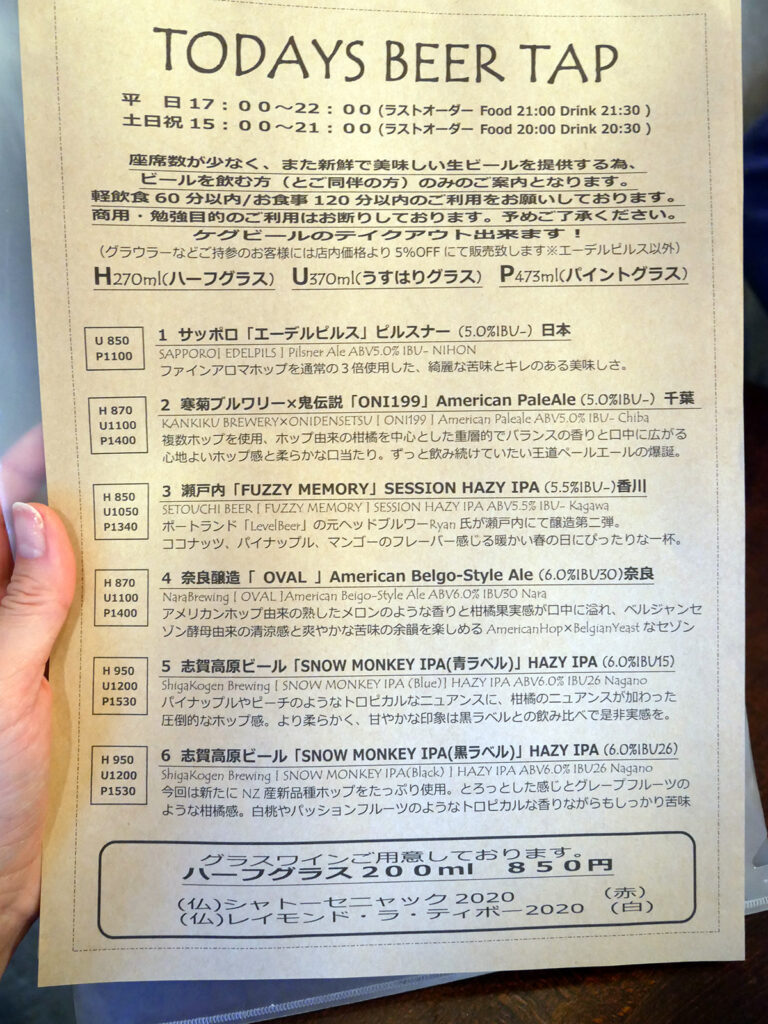 TODAYS BEER TAP
平 日 17：００～22：００ (ラストオーダー Food 21:00 Drink 21:30 )
土日祝 15：００～21：００ (ラストオーダー Food 20:00 Drink 20:30 )
座席数が少なく、また新鮮で美味しい生ビールを提供する為、
ビールを飲む方（とご同伴の方）のみのご案内となります。
軽飲食 60 分以内/お食事 120 分以内のご利用をお願いしております。
商用・勉強目的のご利用はお断りしております。予めご了承ください。
ケグビールのテイクアウト出来ます！
（グラウラーなどご持参のお客様には店内価格より 5%OFF にて販売致します※エーデルピルス以外）
H270ml(ハーフグラス） U370ml(うすはりグラス） P473ml(パイントグラス）
U 850
P1100
1 サッポロ「エーデルピルス」ピルスナー（5.0%IBU-）日本
SAPPORO[ EDELPILS ] Pilsner Ale ABV5.0% IBU- NIHON
ファインアロマホップを通常の３倍使用した、綺麗な苦味とキレのある美味しさ。
H 870
U1100
P1400
2 寒菊ブルワリー×鬼伝説「ONI199」American PaleAle（5.0%IBU-）千葉
KANKIKU BREWERY×ONIDENSETSU [ ONI199 ] American Paleale ABV5.0% IBU- Chiba
複数ホップを使用、ホップ由来の柑橘を中心とした重層的でバランスの香りと口中に広がる
心地よいホップ感と柔らかな口当たり。ずっと飲み続けていたい王道ペールエールの爆誕。
H 850
U1050
P1340
3 瀬戸内「FUZZY MEMORY」SESSION HAZY IPA（5.5%IBU-)香川
SETOUCHI BEER [ FUZZY MEMORY ] SESSION HAZY IPA ABV5.5% IBU- Kagawa
ポートランド「LevelBeer」の元ヘッドブルワーRyan 氏が瀬戸内にて醸造第二弾。
ココナッツ、パイナップル、マンゴーのフレーバー感じる暖かい春の日にぴったりな一杯。
H 870
U1100
P1400
4 奈良醸造「 OVAL 」American Belgo-Style Ale（6.0%IBU30)奈良
NaraBrewing [ OVAL ]American Beigo-Style Ale ABV6.0% IBU30 Nara
アメリカンホップ由来の熟したメロンのような香りと柑橘果実感が口中に溢れ、ベルジャンセ
ゾン酵母由来の清涼感と爽やかな苦味の余韻を楽しめる AmericanHop×BelgianYeast なセゾン
H 950
U1200
P1530
5 志賀高原ビール「SNOW MONKEY IPA(青ラベル)」HAZY IPA（6.0%IBU15)
ShigaKogen Brewing [ SNOW MONKEY IPA (Blue)] HAZY IPA ABV6.0% IBU26 Nagano
パイナップルやピーチのようなトロピカルなニュアンスに、柑橘のニュアンスが加わった
圧倒的なホップ感。より柔らかく、甘やかな印象は黒ラベルとの飲み比べで是非実感を。
H 950
U1200
P1530
6 志賀高原ビール「SNOW MONKEY IPA(黒ラベル)」HAZY IPA（6.0%IBU26)
ShigaKogen Brewing [ SNOW MONKEY IPA(Black) ] HAZY IPA ABV6.0% IBU26 Nagano
今回は新たに NZ 産新品種ホップをたっぷり使用。とろっとした感じとグレープフルーツの
ような柑橘感。白桃やパッションフルーツのようなトロピカルな香りながらもしっかり苦味
グラスワインご用意しております。
ハーフグラス２００ml ８５０円
（仏）シャトーセニャック 2020 （赤）
（仏）レイモンド・ラ・ティボー2020 （白）